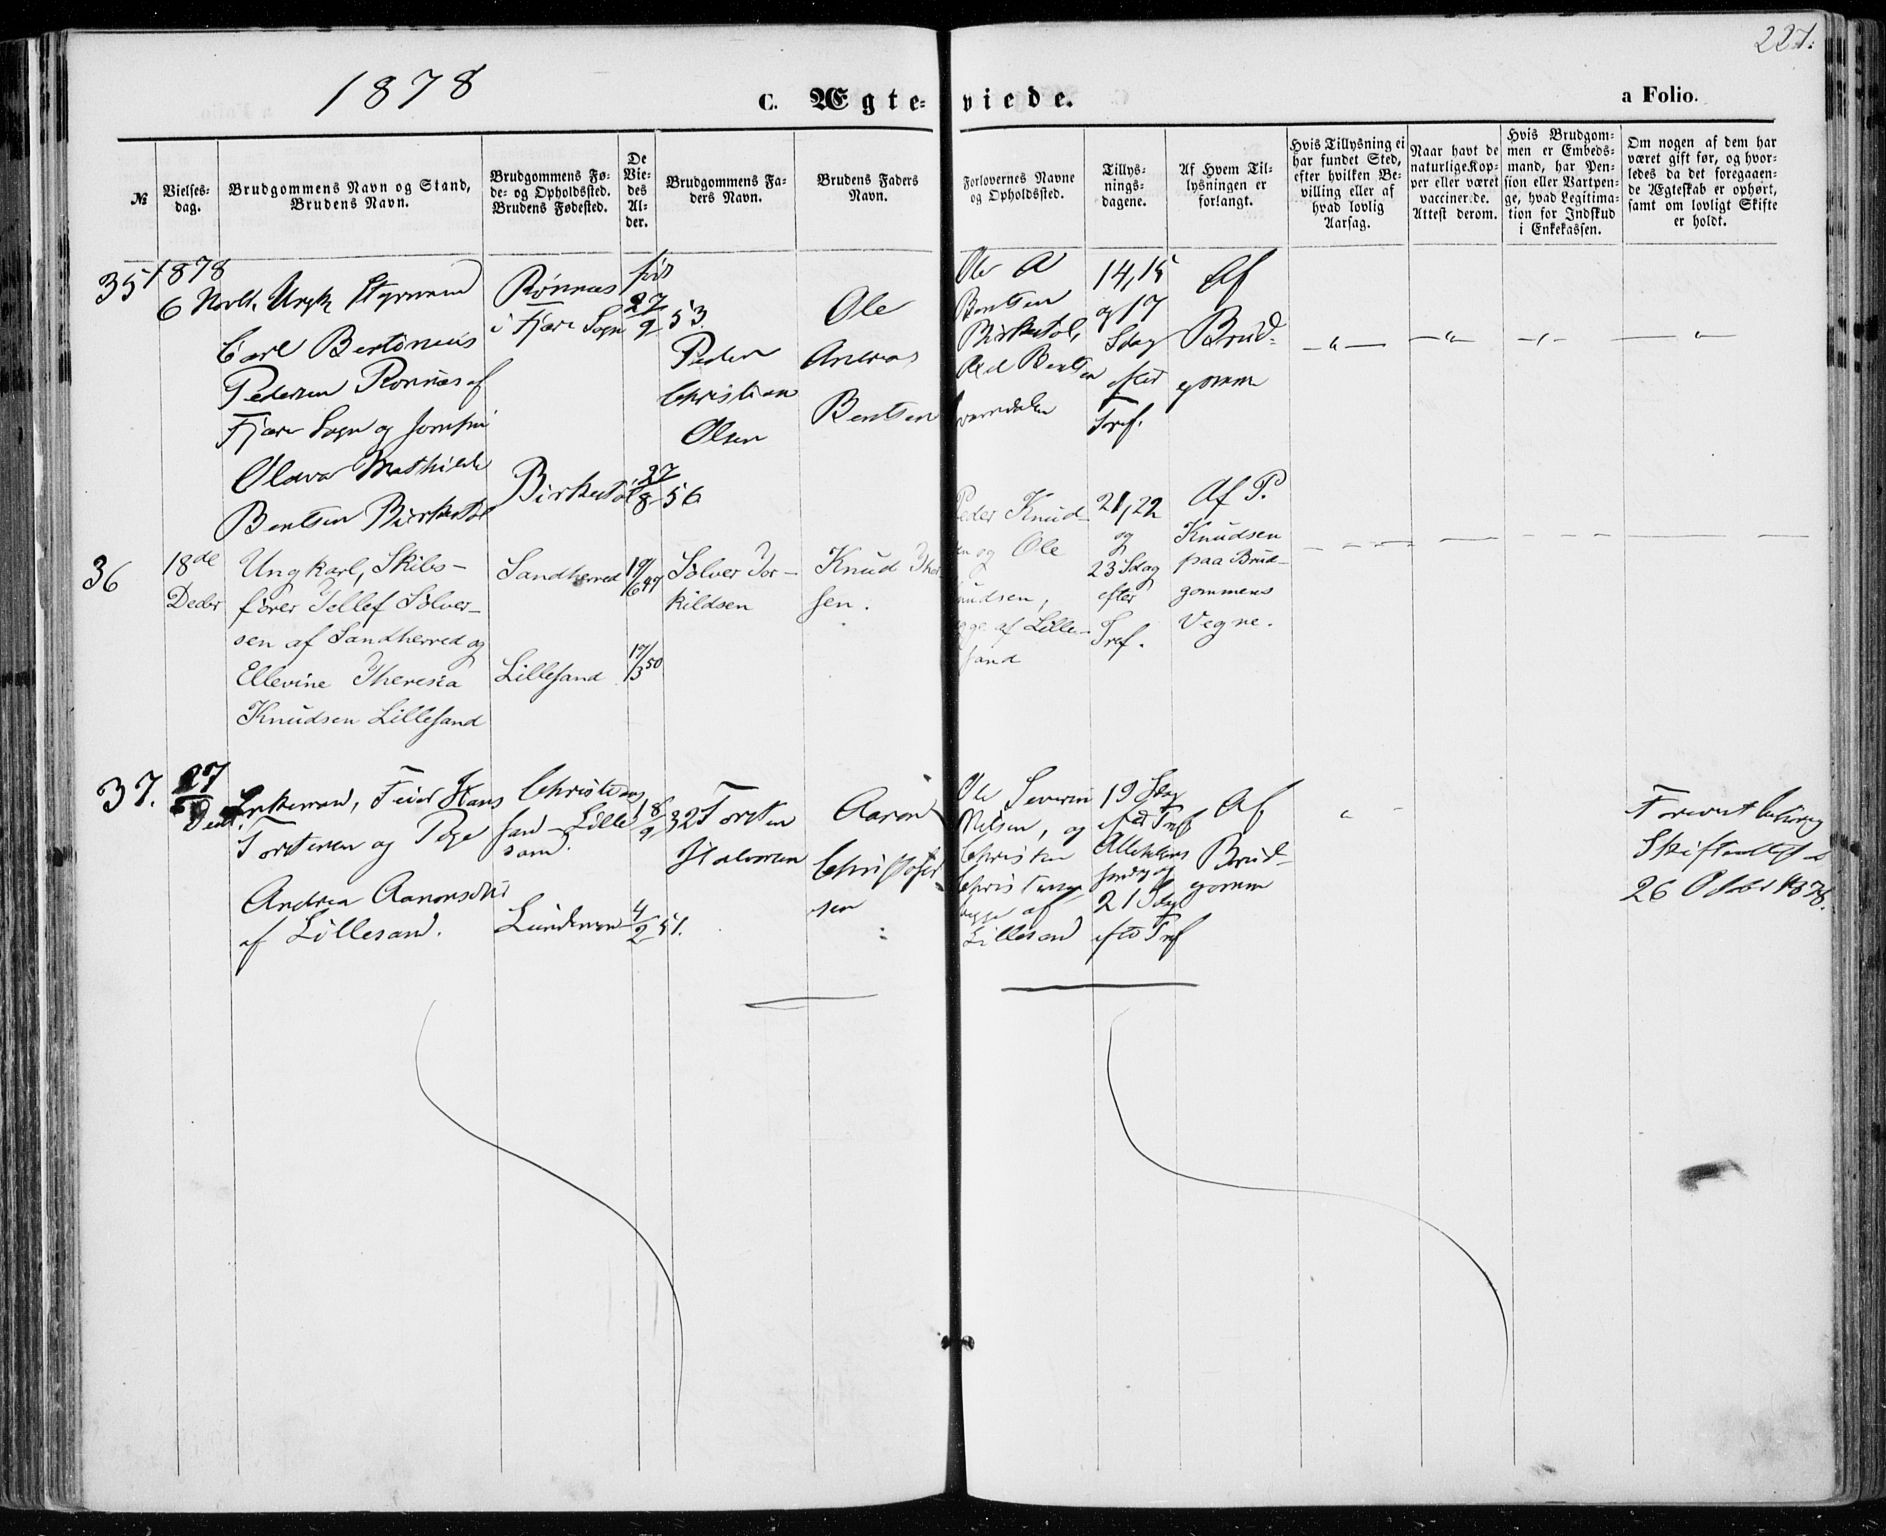 221.
1878
C. Ægte-viede.
a Folio.
№
Vielses-
dag.
Brudgommens Navn og Stand,
Brudens Navn.
Brudgommens Fø-
de- og Opholdssted.
Brudens Fødested.
De
Vie-
des
Al-
der.
Brudgommens Fa-
ders Navn.
Brudens Faders
Navn.
Forlovernes Navne
og Opholdssted.
Tillys-
nings-
dagene.
Af Hvem Til-
lysningen er
forlangt.
Hvis Tillysning ei
har fundet Sted,
efter hvilken Be-
villing eller af
hvad lovlig
Aarsag.
Naar havt de
naturlige Kop-
per eller været
vaccinerede.
Attest derom.
Hvis Brudgom-
men er Embeds-
mand, har Pen-
sion eller Vartpen-
ge, hvad Legitima-
tion for Indskud
i Enkekassen.
Om nogen af dem har
været gift før, og hvor-
ledes da det foregaaen-
de Ægteskab er ophørt,
samt om lovligt Skifte
er holdt.
35
1878
6
Carl
Pedersen Rønnes af
Fjære Sogn og
Olava Mathilde
Bentsen Birkedal
Rønnes
i Fjære Sogn
Birkedal
født
27/9 53.
27/8 56
Peder
Christian
Olsen
Ole
Andreas
Bentsen
Ole A
Bentsen
14, 15
og 17
Sdag
efter
Tref.
Af
Brud-
gomm
36
18de
Decbr
Ungkarl, Skibs-
fører Tellef Sølver-
sen af Sandherred og
Ellevine Theresia
Knudsen Lillesand
Sandherred
Lillesand
19/6 47
19/3 50
Sølver Tor-
kildsen
Knud
sen.
Peder Knud-
og Ole
af Lille-
sand
21, 22
og
23 Sdag
efter
Tref.
Af P.
Knudsen
paa Brud-
gommens
Vegne.
37.
27
Enkemand, Hans
Torstensen og Pige
Andrea Aaronsdtr
af Lillesand.
Christians
sand - Lille
sand.
18/9 32
4/2 51.
Torsten
Halvorsen
Aaron
Christofer
sen
Ole Severin
Nielsen, og
Christen
begge af
Lillesand
19 Sdag
efter Tref
21 Sdag
efter Tref
Af
Brud-
gomm
Forevist
Skifteattest
26 Octbr 1878.